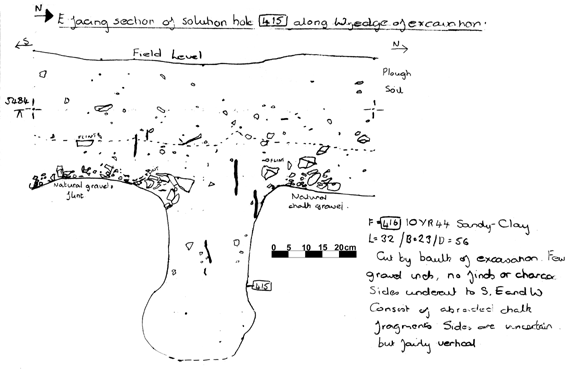 N
E facing section of solution hole 415 along W. edge of excavation.
S
N
Field Level
Plough
Soil
5484
FLINTS
Natural gravel,
flint
Natural
chalk gravel.
0 5 10 15 20cm
415
F= 416 10YR44 Sandy-Clay
L=32 / B=23 / D=56
Cut by baulk of excavation. Few
gravel incls, no finds or charcoal
Sides undercut to S, E and W
Consist of abraded chalk
fragments Sides are uncertain
but fairly vertical